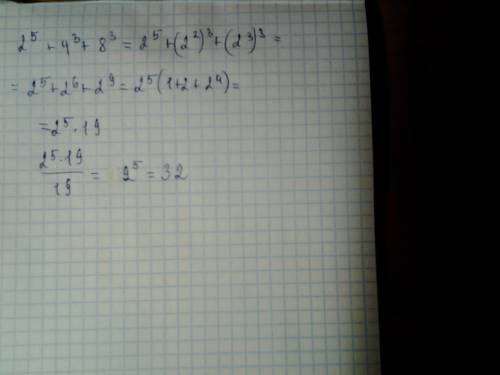 2⁵ + 4³ + 8³ = 2⁵ + (2²)³ + (2³)³ =
= 2⁵ + 2⁶ + 2⁹ = 2⁵(1+2+2⁴) =
= 2⁵ · 19
2⁵·19/19 = 2⁵ = 32